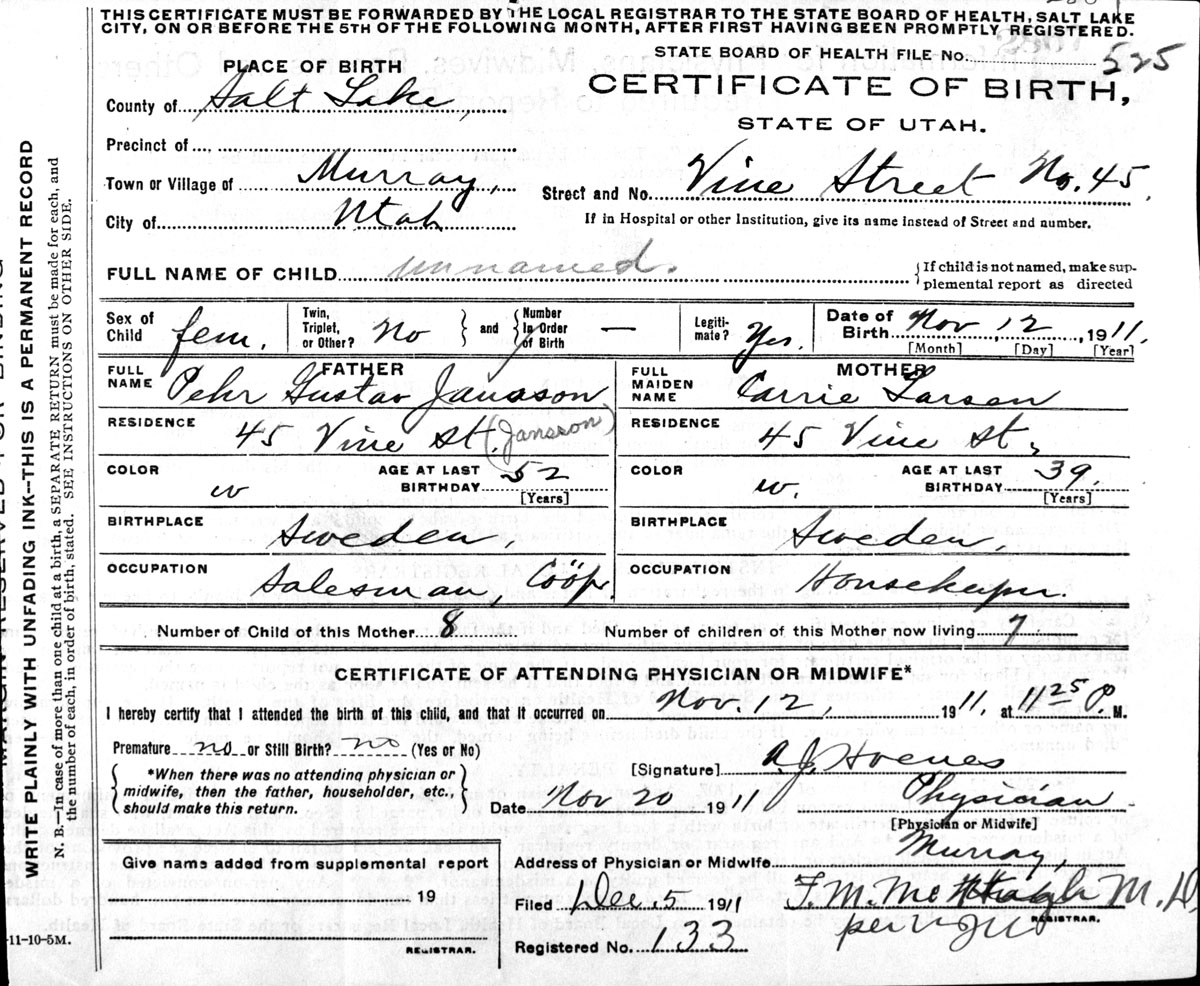 THIS CERTIFICATE MUST BE FORWARDED BY THE LOCAL REGISTRAR TO THE STATE BOARD OF HEALTH, SALT LAKE
CITY, ON OR BEFORE THE 5TH OF THE FOLLOWING MONTH, AFTER FIRST HAVING BEEN PROMPTLY REGISTERED.
STATE BOARD OF HEALTH FILE No. 525
PLACE OF BIRTH
CERTIFICATE OF BIRTH,
County of Salt Lake,
STATE OF UTAH.
Precinct of
Town or Village of Murray, Street and No. Vine Street No. 45
City of Utah
If in Hospital or other Institution, give its name instead of Street and number.
FULL NAME OF CHILD unnamed. {If child is not named, make sup-
plemental report as directed
Sex of Child fem. Twin, Triplet, or Other? No } and { Number In Order of Birth — Legiti- mate? Yes. Date of Birth Nov. 12, 1911,
[Month] [Day] [Year]
FATHER MOTHER
FULL NAME Pehr Gustav Jansson FULL MAIDEN NAME Carrie Larsen
RESIDENCE 45 Vine St. (Jansson) RESIDENCE 45 Vine St,
COLOR w AGE AT LAST BIRTHDAY 52 [Years] COLOR w. AGE AT LAST BIRTHDAY 39. [Years]
BIRTHPLACE Sweden, BIRTHPLACE Sweden,
OCCUPATION Salesman, Coöp OCCUPATION Housekeeper.
Number of Child of this Mother 8 Number of children of this Mother now living 7
CERTIFICATE OF ATTENDING PHYSICIAN OR MIDWIFE*
I hereby certify that I attended the birth of this child, and that it occurred on Nov. 12, 1911, at 11 25 P. M.
Premature no or Still Birth? no (Yes or No)
*When there was no attending physician or midwife, then the father, householder, etc., should make this return.
[Signature] A.J. Hoenes
Date Nov 20 1911 Physician
[Physician or Midwife]
Give name added from supplemental report
19
REGISTRAR.
Address of Physician or Midwife Murray,
Filed Dec. 5 1911 F. M. McHugh M. D.
REGISTRAR.
Registered No. 133 per
-11-10-5M.
MARGIN RESERVED FOR BINDING
WRITE PLAINLY WITH UNFADING INK--THIS IS A PERMANENT RECORD
N. B.—In case of more than one child at a birth, a SEPARATE RETURN must be made for each, and
the number of each, in order of birth, stated. SEE INSTRUCTIONS ON OTHER SIDE.